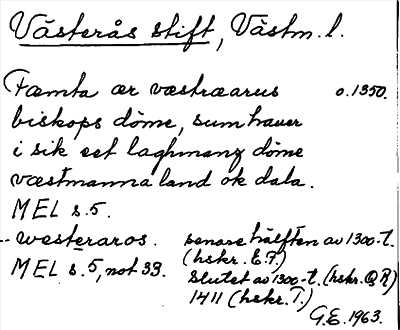 Västerås stift, Västm. l.
Fæmta ær væstræarus o. 1350.
biskops döme, sum hauer
i sik eet laghmanz döme
væstmanna land ok dala.
MEL s. 5.
-- westeraros. senare hälften av 1300-t.
(hskr. E.F.)
MEL s. 5, not 33. slutet av 1300-t. (hskr. Q R)
1411 (hskr. T.)
G.E. 1963.